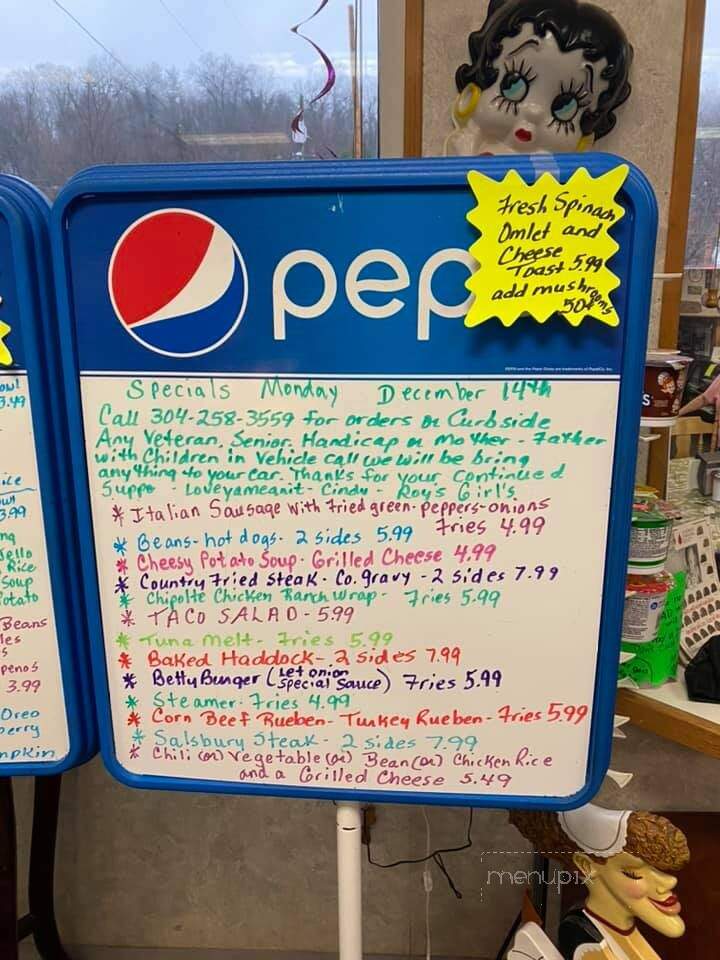 pep
Fresh Spinach
Omlet and
Cheese
Toast 5.99
add mushrooms
50¢
Specials Monday December 14th
Call 304-258-3559 for orders or Curbside
Any Veteran, Senior, Handicap or Mother - Father
with Children in Vehicle call we will be bring
anything to your car. Thanks for your continued
Suppo - Loveyameanit - Cindy - Roy's Girl's
* Italian Sausage with fried green-peppers-onions
Fries 4.99
* Beans-hot dogs- 2 sides 5.99
* Cheesy Potato Soup- Grilled Cheese 4.99
* Country Fried Steak- Co. gravy - 2 sides 7.99
* Chipolte Chicken Ranch wrap- Fries 5.99
* TACO SALAD - 5.99
* Tuna melt- Fries 5.99
* Baked Haddock- 2 sides 7.99
* Betty Burger (Let onion Special Sauce) Fries 5.99
* Steamer- Fries 4.99
* Corn Beef Rueben- Turkey Rueben- Fries 5.99
* Salsbury Steak- 2 sides 7.99
* Chili (or) Vegetable (or) Bean (or) Chicken Rice
and a Grilled Cheese 5.49
3.49
3.99
Jello
Rice
Soup
Potato
Beans
3.99
Oreo
menupix